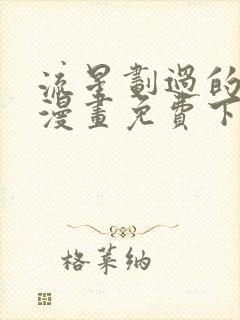 流星劃過的
漫畫免費下
格萊納